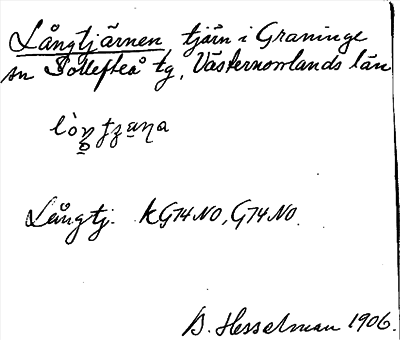 Långtjärnen tjärn i Graninge
sn Sollefteå tg, Västernorrlands län
Långtj. KG74NO, G74NO.
B. Hesselman 1906.